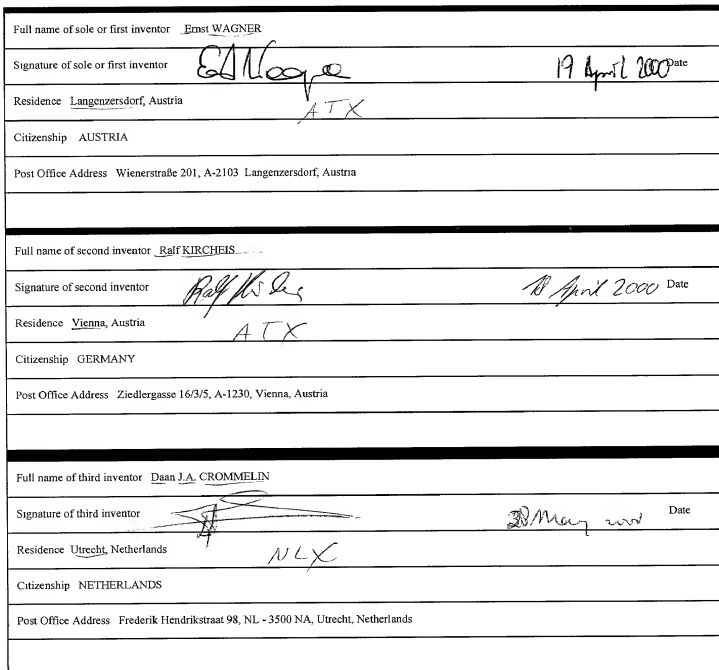 Full name of sole or first inventor Ernst WAGNER
Signature of sole or first inventor 19 April 2000 Date
Residence Langenzersdorf, Austria
ATX
Citizenship AUSTRIA
Post Office Address Wienerstraße 201, A-2103 Langenzersdorf, Austria
Full name of second inventor Ralf KIRCHEIS
Signature of second inventor Ralf April 2000 Date
Residence Vienna, Austria
ATX
Citizenship GERMANY
Post Office Address Ziedlergasse 16/3/5, A-1230, Vienna, Austria
Full name of third inventor Daan J.A. CROMMELIN
Signature of third inventor May Date
Residence Utrecht, Netherlands
NLX
Citizenship NETHERLANDS
Post Office Address Frederik Hendrikstraat 98, NL - 3500 NA, Utrecht, Netherlands